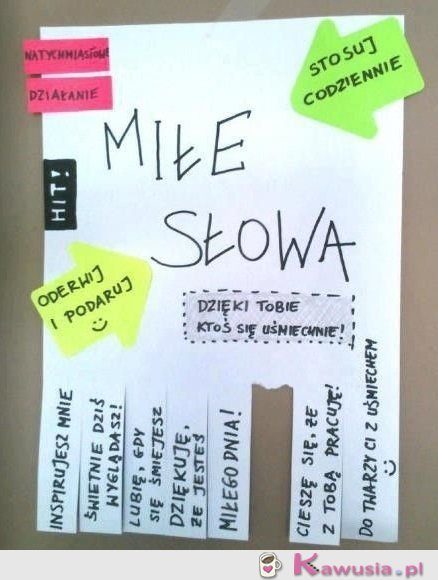 NATYCHMIASTOWE
DZIAŁANIE
STOSUJ
CODZIENNIE
MIŁE
HIT!
SŁOWA
ODERWIJ
I PODARUJ
DZIĘKI TOBIE
KTOŚ SIĘ UŚMIECHNIE!
INSPIRUJESZ MNIE
ŚWIETNIE DZIŚ
WYGLĄDASZ!
LUBIĘ, GDY
SIĘ ŚMIEJESZ
DZIĘKUJĘ,
ŻE JESTEŚ
MIŁEGO DNIA!
CIESZĘ SIĘ, ŻE
Z TOBĄ PRACUJĘ!
DO TWARZY CI Z UŚMIECHEM
Kawusia.pl